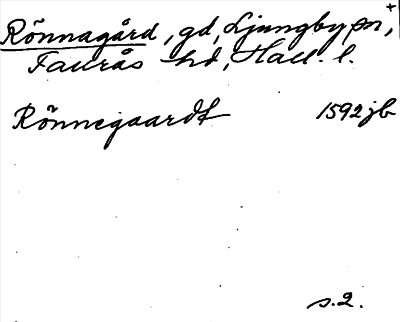 Rönnagård, gd, Ljungby sn, +
Faurås hd, Hall. l.
Rönnegaardt 1592 jb
s. 2.